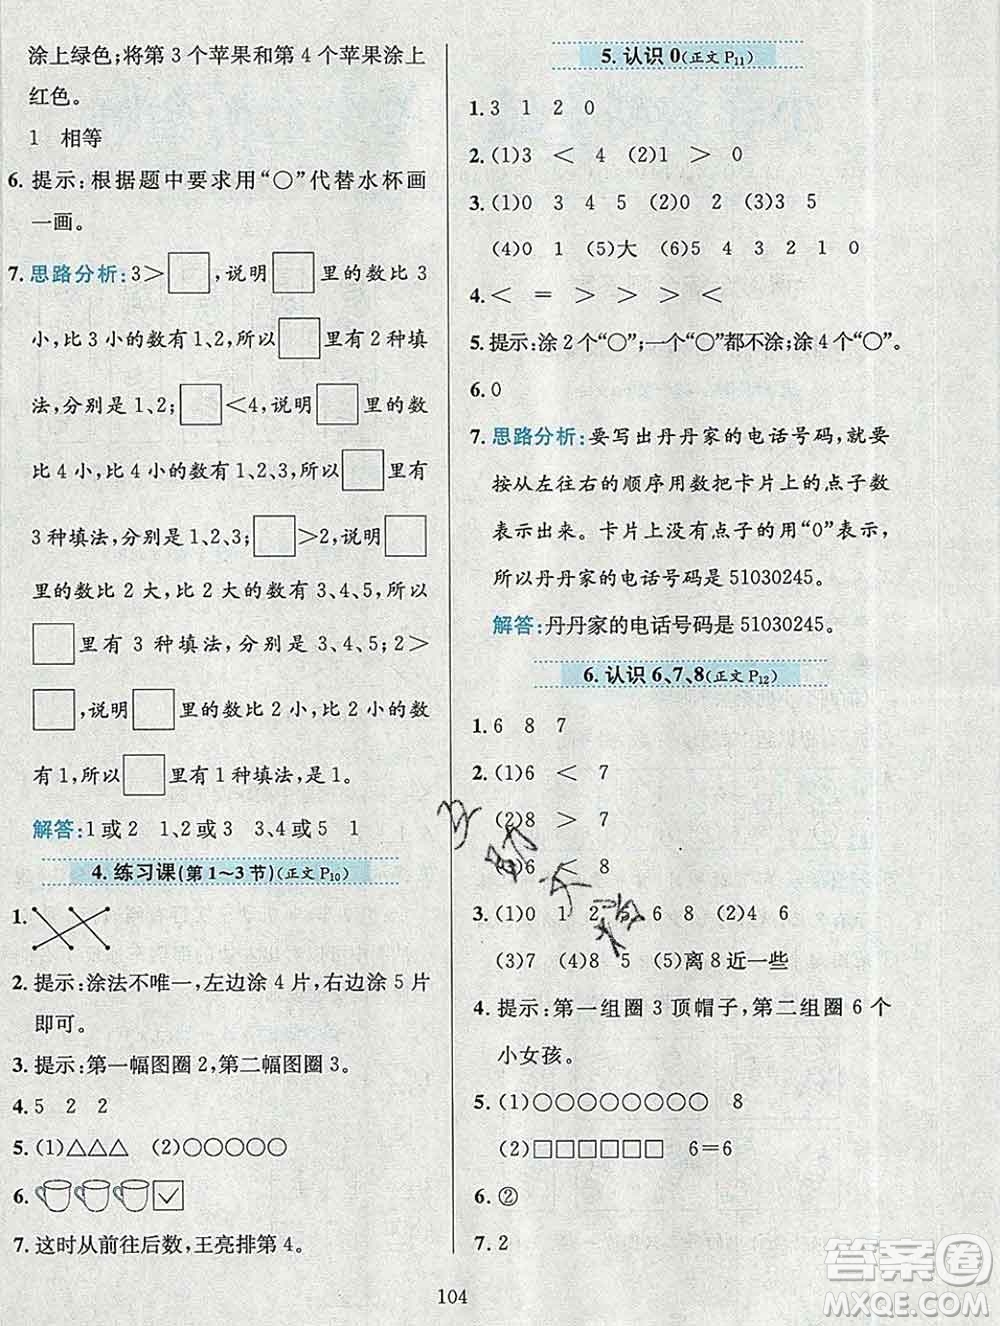 涂上绿色;将第 3 个苹果和第 4 个苹果涂上
红色。
1 相等
6. 提示:根据题中要求用“○”代替水杯画
一画。
7. 思路分析:3＞□,说明□里的数比 3
小,比 3 小的数有 1、2,所以□里有 2 种填
法,分别是 1、2;□＜4,说明□里的数
比 4 小,比 4 小的数有 1、2、3,所以□里有
3 种填法,分别是 1、2、3;□＞2,说明□
里的数比 2 大,比 2 大的数有 3、4、5,所以
□里有 3 种填法,分别是 3、4、5;2＞
□,说明□里的数比 2 小,比 2 小的数
有 1,所以□里有 1 种填法,是 1。
解答:1 或 2 1、2 或 3 3、4 或 5 1
4. 练习课(第 1～3 节)(正文 P10)
1.
2. 提示:涂法不唯一,左边涂 4 片,右边涂 5 片
即可。
3. 提示:第一幅图圈 2,第二幅图圈 3。
4. 5 2 2
5. (1)△△△ (2)○○○○○
6. ✓
7. 这时从前往后数,王亮排第 4。
5. 认识 0(正文 P11)
1. 3 1 2 0
2. (1)3 ＜ 4 (2)1 ＞ 0
3. (1)0 3 4 5 (2)0 2 (3)3 5
(4)0 1 (5)大 (6)5 4 3 2 1 0
4. ＜ ＝ ＞ ＞ ＞ ＜
5. 提示:涂 2 个“○”;一个“○”都不涂;涂 4 个“○”。
6. 0
7. 思路分析:要写出丹丹家的电话号码,就要
按从左往右的顺序用数把卡片上的点子数
表示出来。卡片上没有点子的用“0”表示,
所以丹丹家的电话号码是 51030245。
解答:丹丹家的电话号码是 51030245。
6. 认识 6、7、8(正文 P12)
1. 6 8 7
2. (1)6 ＜ 7
(2)8 ＞ 7
(3)6 ＜ 8
3. (1)0 1 2 6 8 (2)4 6
(3)7 (4)8 5 (5)离 8 近一些
4. 提示:第一组圈 3 顶帽子,第二组圈 6 个
小女孩。
5. (1)○○○○○○○○ 8
(2)□□□□□□ 6＝6
6. ②
7. 2
104
答案圈
MXQE.COM